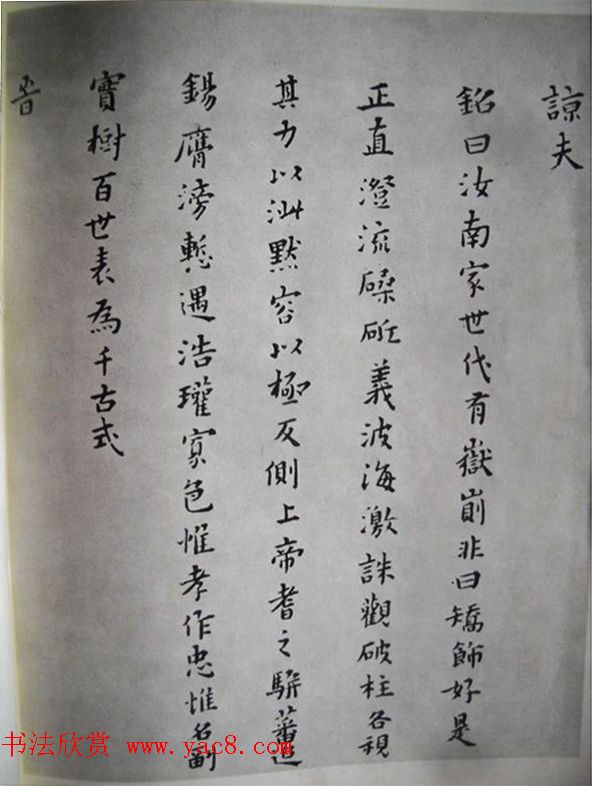 諒夫
銘曰汝南家世代有嶽崱非曰矯飾好是
正直澄流義波海激誅觀破柱各視
其力以默容以極反側上帝耆之駢蕃
錫膺滂慙遇浩瓘寡色惟孝作忠惟名副
實樹百世表為千古式
书法欣赏 www.yac8.com